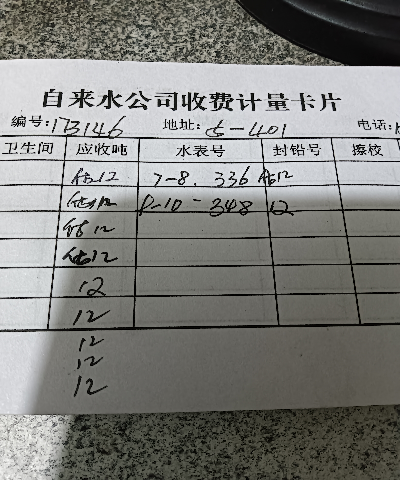 自来水公司收费计量卡片
编号:173146 地址: 5-401 电话:
卫生间 应收吨 水表号 封铅号 擦校
估12 7-8. 336 估12
估12 8-10- 348 12
估12
估12
12
12
12
12
12